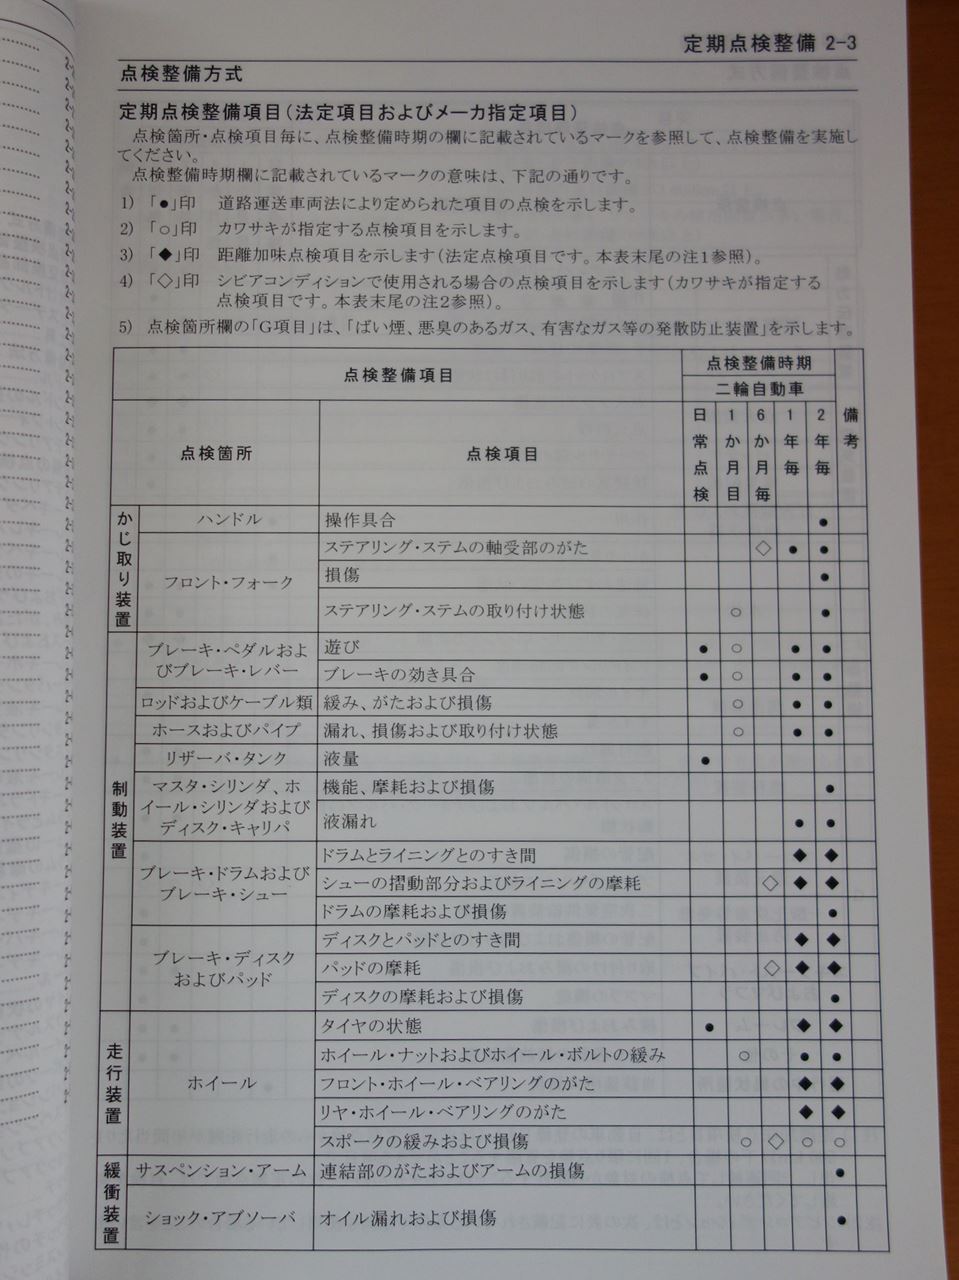 定期点検整備 2-3
点検整備方式
定期点検整備項目(法定項目およびメーカ指定項目)
点検箇所・点検項目毎に、点検整備時期の欄に記載されているマークを参照して、点検整備を実施し
てください。
点検整備時期欄に記載されているマークの意味は、下記の通りです。
1) 「●」印 道路運送車両法により定められた項目の点検を示します。
2) 「○」印 カワサキが指定する点検項目を示します。
3) 「◆」印 距離加味点検項目を示します(法定点検項目です。本表末尾の注1参照)。
4) 「◇」印 シビアコンディションで使用される場合の点検項目を示します(カワサキが指定する
点検項目です。本表末尾の注2参照)。
5) 点検箇所欄の「G項目」は、「ばい煙、悪臭のあるガス、有害なガス等の発散防止装置」を示します。
点検整備項目 点検整備時期 備考
二輪自動車
点検箇所 点検項目 日常点検 1か月目 6か月毎 1年毎 2年毎
かじ取り装置 ハンドル 操作具合 ●
フロント・フォーク ステアリング・ステムの軸受部のがた ◇ ● ●
損傷 ●
ステアリング・ステムの取り付け状態 ○ ●
制動装置 ブレーキ・ペダルおよ 遊び ● ○ ● ●
びブレーキ・レバー ブレーキの効き具合 ● ○ ● ●
ロッドおよびケーブル類 緩み、がたおよび損傷 ○ ● ●
ホースおよびパイプ 漏れ、損傷および取り付け状態 ○ ● ●
リザーバ・タンク 液量 ●
マスタ・シリンダ、ホ 機能、摩耗および損傷 ●
イール・シリンダおよび
ディスク・キャリパ 液漏れ ● ●
ブレーキ・ドラムおよび ドラムとライニングとのすき間 ◆ ◆
ブレーキ・シュー シューの摺動部分およびライニングの摩耗 ◇ ◆ ◆
ドラムの摩耗および損傷 ●
ブレーキ・ディスク ディスクとパッドとのすき間 ◆ ◆
およびパッド パッドの摩耗 ◇ ◆ ◆
ディスクの摩耗および損傷 ●
走行装置 ホイール タイヤの状態 ● ◆ ◆
ホイール・ナットおよびホイール・ボルトの緩み ○ ● ●
フロント・ホイール・ベアリングのがた ◆ ◆
リヤ・ホイール・ベアリングのがた ◆ ◆
スポークの緩みおよび損傷 ○ ◇ ○ ○
緩衝装置 サスペンション・アーム 連結部のがたおよびアームの損傷 ●
ショック・アブソーバ オイル漏れおよび損傷 ●